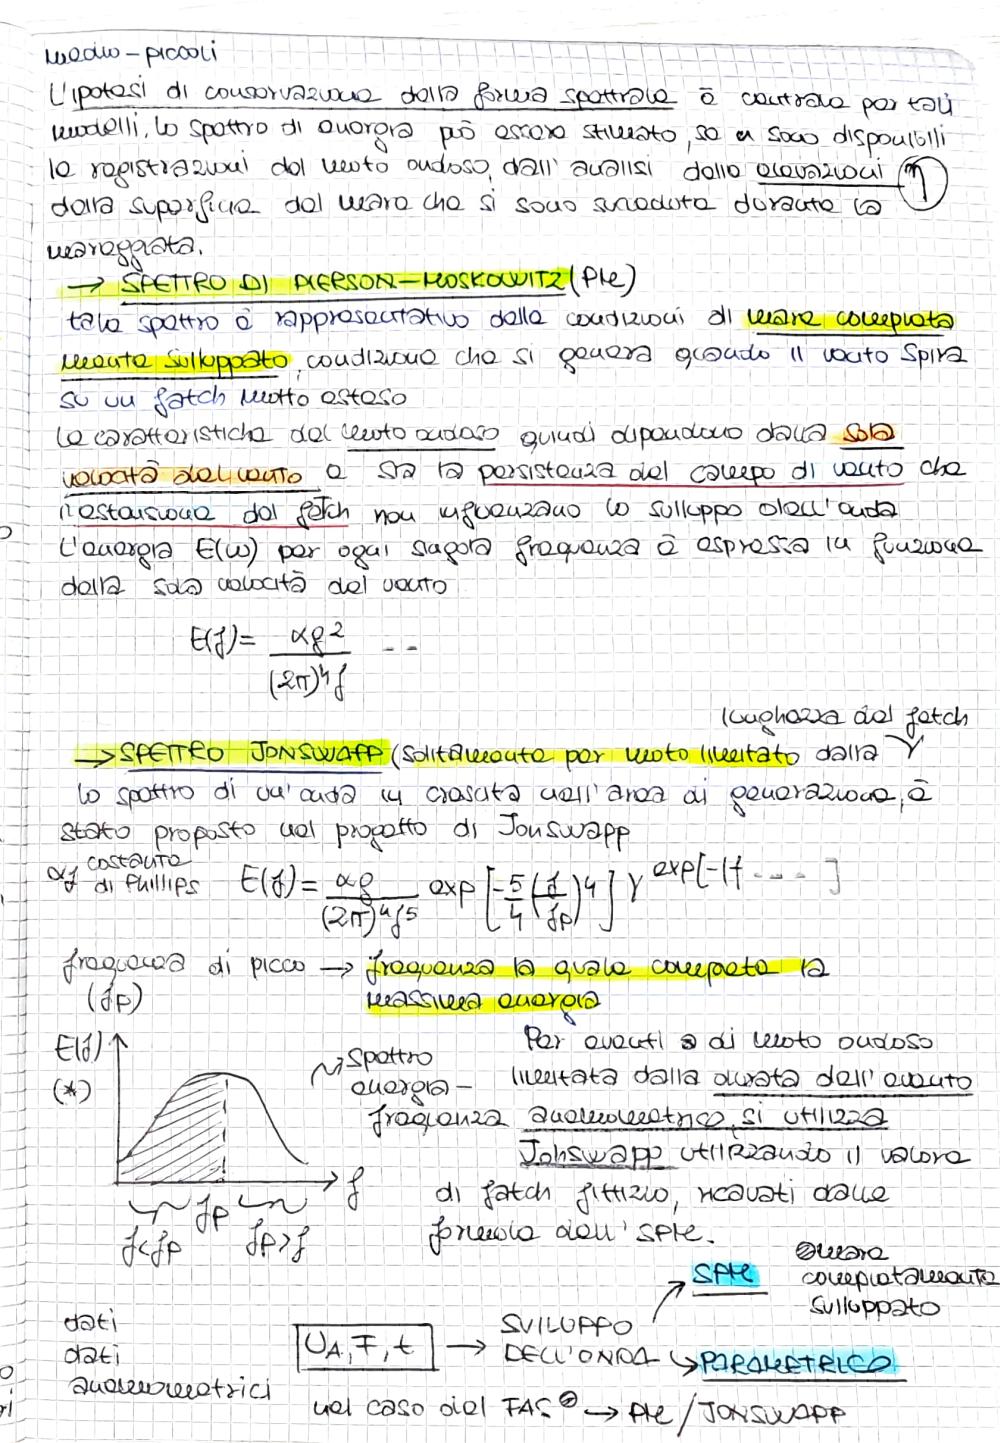 medio-piccoli
L'ipotesi di conservazione della forma spettrale è centrale per tali
modelli, lo spettro di energia può essere stimato, se si sono disponibili
le registrazioni del moto ondoso, dall'analisi delle elevazioni η
della superficie del mare che si sono succedute durante la
mareggiata.
→ SPETTRO DI PIERSON-MOSKOWITZ (PM)
tale spettro è rappresentativo delle condizioni di mare completa
mente sviluppato, condizione che si genera quando il vento spira
su un fetch molto esteso
le caratteristiche del moto ondoso quindi dipendono dalla sola
velocità del vento e sia la persistenza del campo di vento che
l'estensione del fetch non influenzano lo sviluppo dell'onda
L'energia E(ω) per ogni singola frequenza è espressa in funzione
della sola velocità del vento
E(f) = αg² / (2π)⁴f --
lunghezza del fetch
→ SPETTRO JONSWAPP (solitamente per moto limitato dalla γ
lo spettro di un'onda in crescita nell'area di generazione, è
stato proposto nel progetto di Jonswapp
αf costante di Phillips
E(f) = αg / (2π)⁴f⁵ exp [-5/4 (f/fp)⁴] γ exp[-(f ---- ]
frequenza di picco → frequenza la quale compete la
(fp) massima energia
E(f)
(*)
Spettro
energia-
frequenza
f
fp
f<fp fp>f
Per eventi di moto ondoso
limitata dalla durata dell'evento
anemometrico, si utilizza
Jonswapp utilizzando il valore
di fetch fittizio, ricavati dalle
formule dell'SPM.
dati
dati
anemometrici
UA, F, t → SVILUPPO
DELL'ONDA
SPM
mare
completamente
sviluppato
PARAMETRICO
nel caso del FAS → PM / JONSWAPP